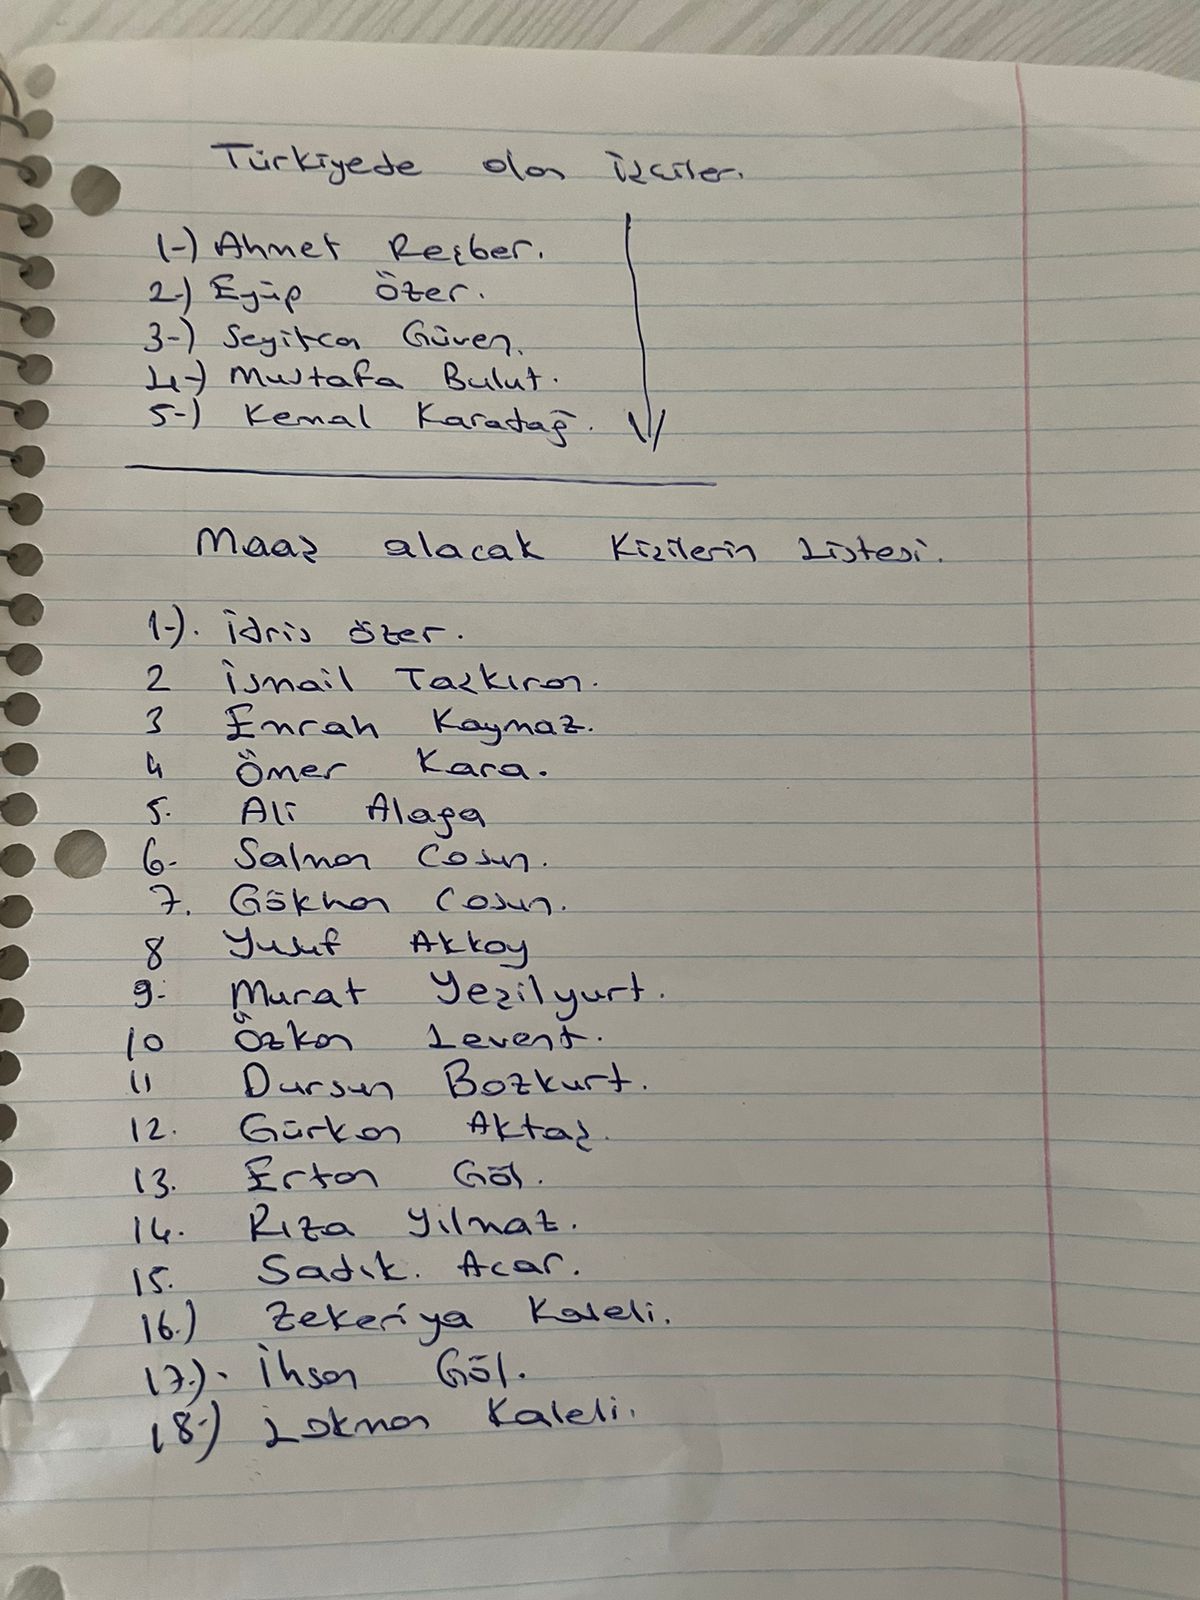 Türkiyede olan işçiler.
1-) Ahmet Reçber.
2-) Eyüp Özer.
3-) Seyitcan Güven.
4-) Mustafa Bulut.
5-) Kemal Karadağ.
Maaş alacak Kişilerin Listesi.
1-). İdris Özer.
2 İsmail Taşkıran.
3 Emrah Kaymaz.
4 Ömer Kara.
5. Ali Alağa
6- Salman Cosun.
7. Gökhan Cosun.
8 Yusuf Akkoy
9- Murat Yeşilyurt.
10 Özkan Levent.
11 Dursun Bozkurt.
12. Gürkan Aktaş.
13. Ertan Göl.
14. Rıza Yilmaz.
15. Sadık. Acar.
16.) Zekeriya Kaleli.
17.)- İhsan Göl.
18-) Lokman Kaleli.